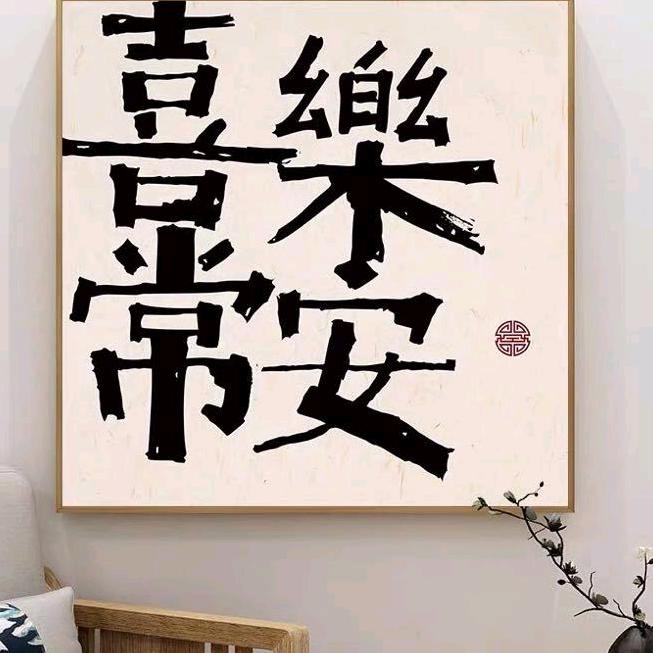 喜樂
常安